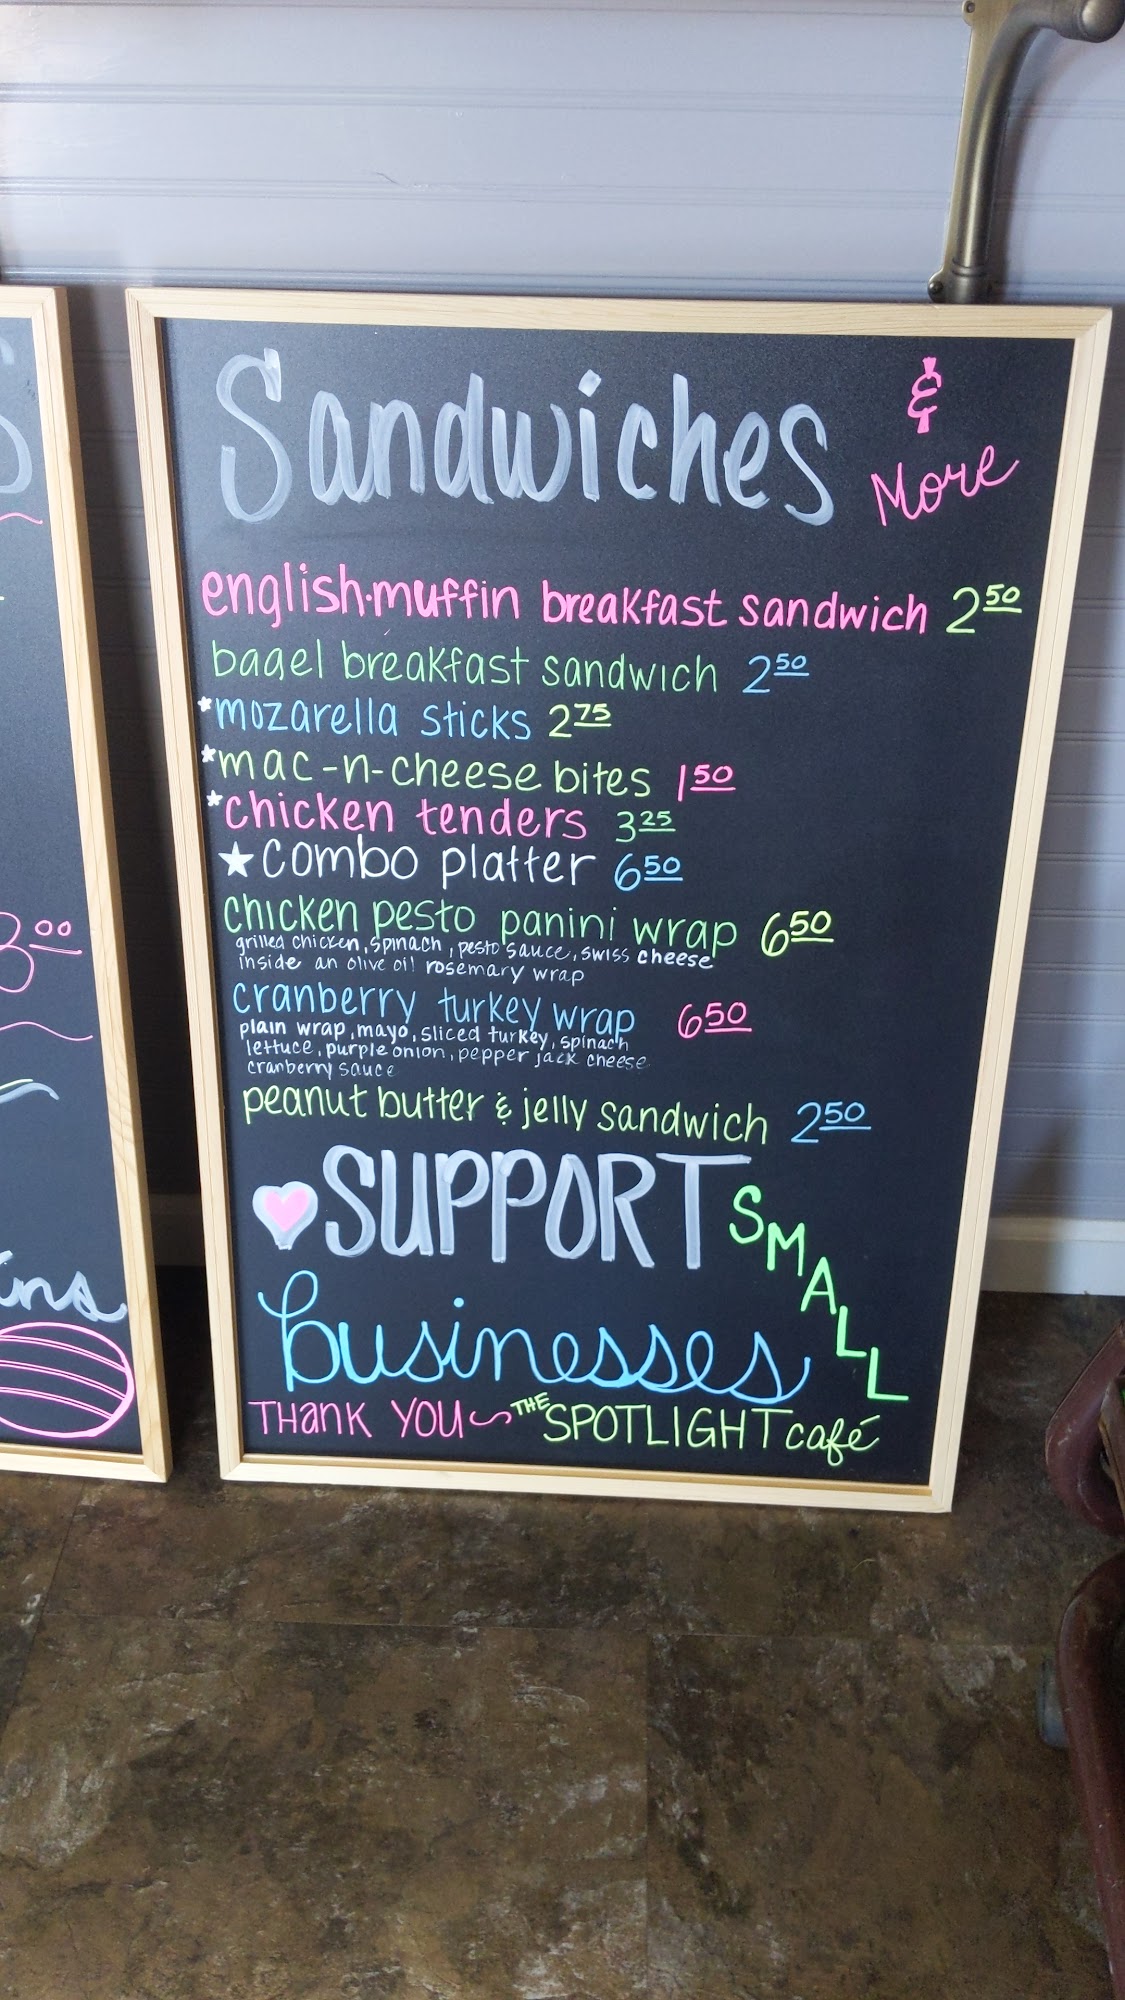 Sandwiches & More
english-muffin breakfast sandwich 2.50
bagel breakfast sandwich 2.50
*mozarella sticks 2.75
*mac-n-cheese bites 1.50
*chicken tenders 3.25
★combo platter 6.50
chicken pesto panini wrap 6.50
grilled chicken, spinach, pesto sauce, swiss cheese
inside an olive oil rosemary wrap
cranberry turkey wrap 6.50
plain wrap, mayo, sliced turkey, spinach
lettuce, purple onion, pepper jack cheese
cranberry sauce
peanut butter & jelly sandwich 2.50
SUPPORT SMALL
businesses
THANK YOU ~ THE SPOTLIGHT café